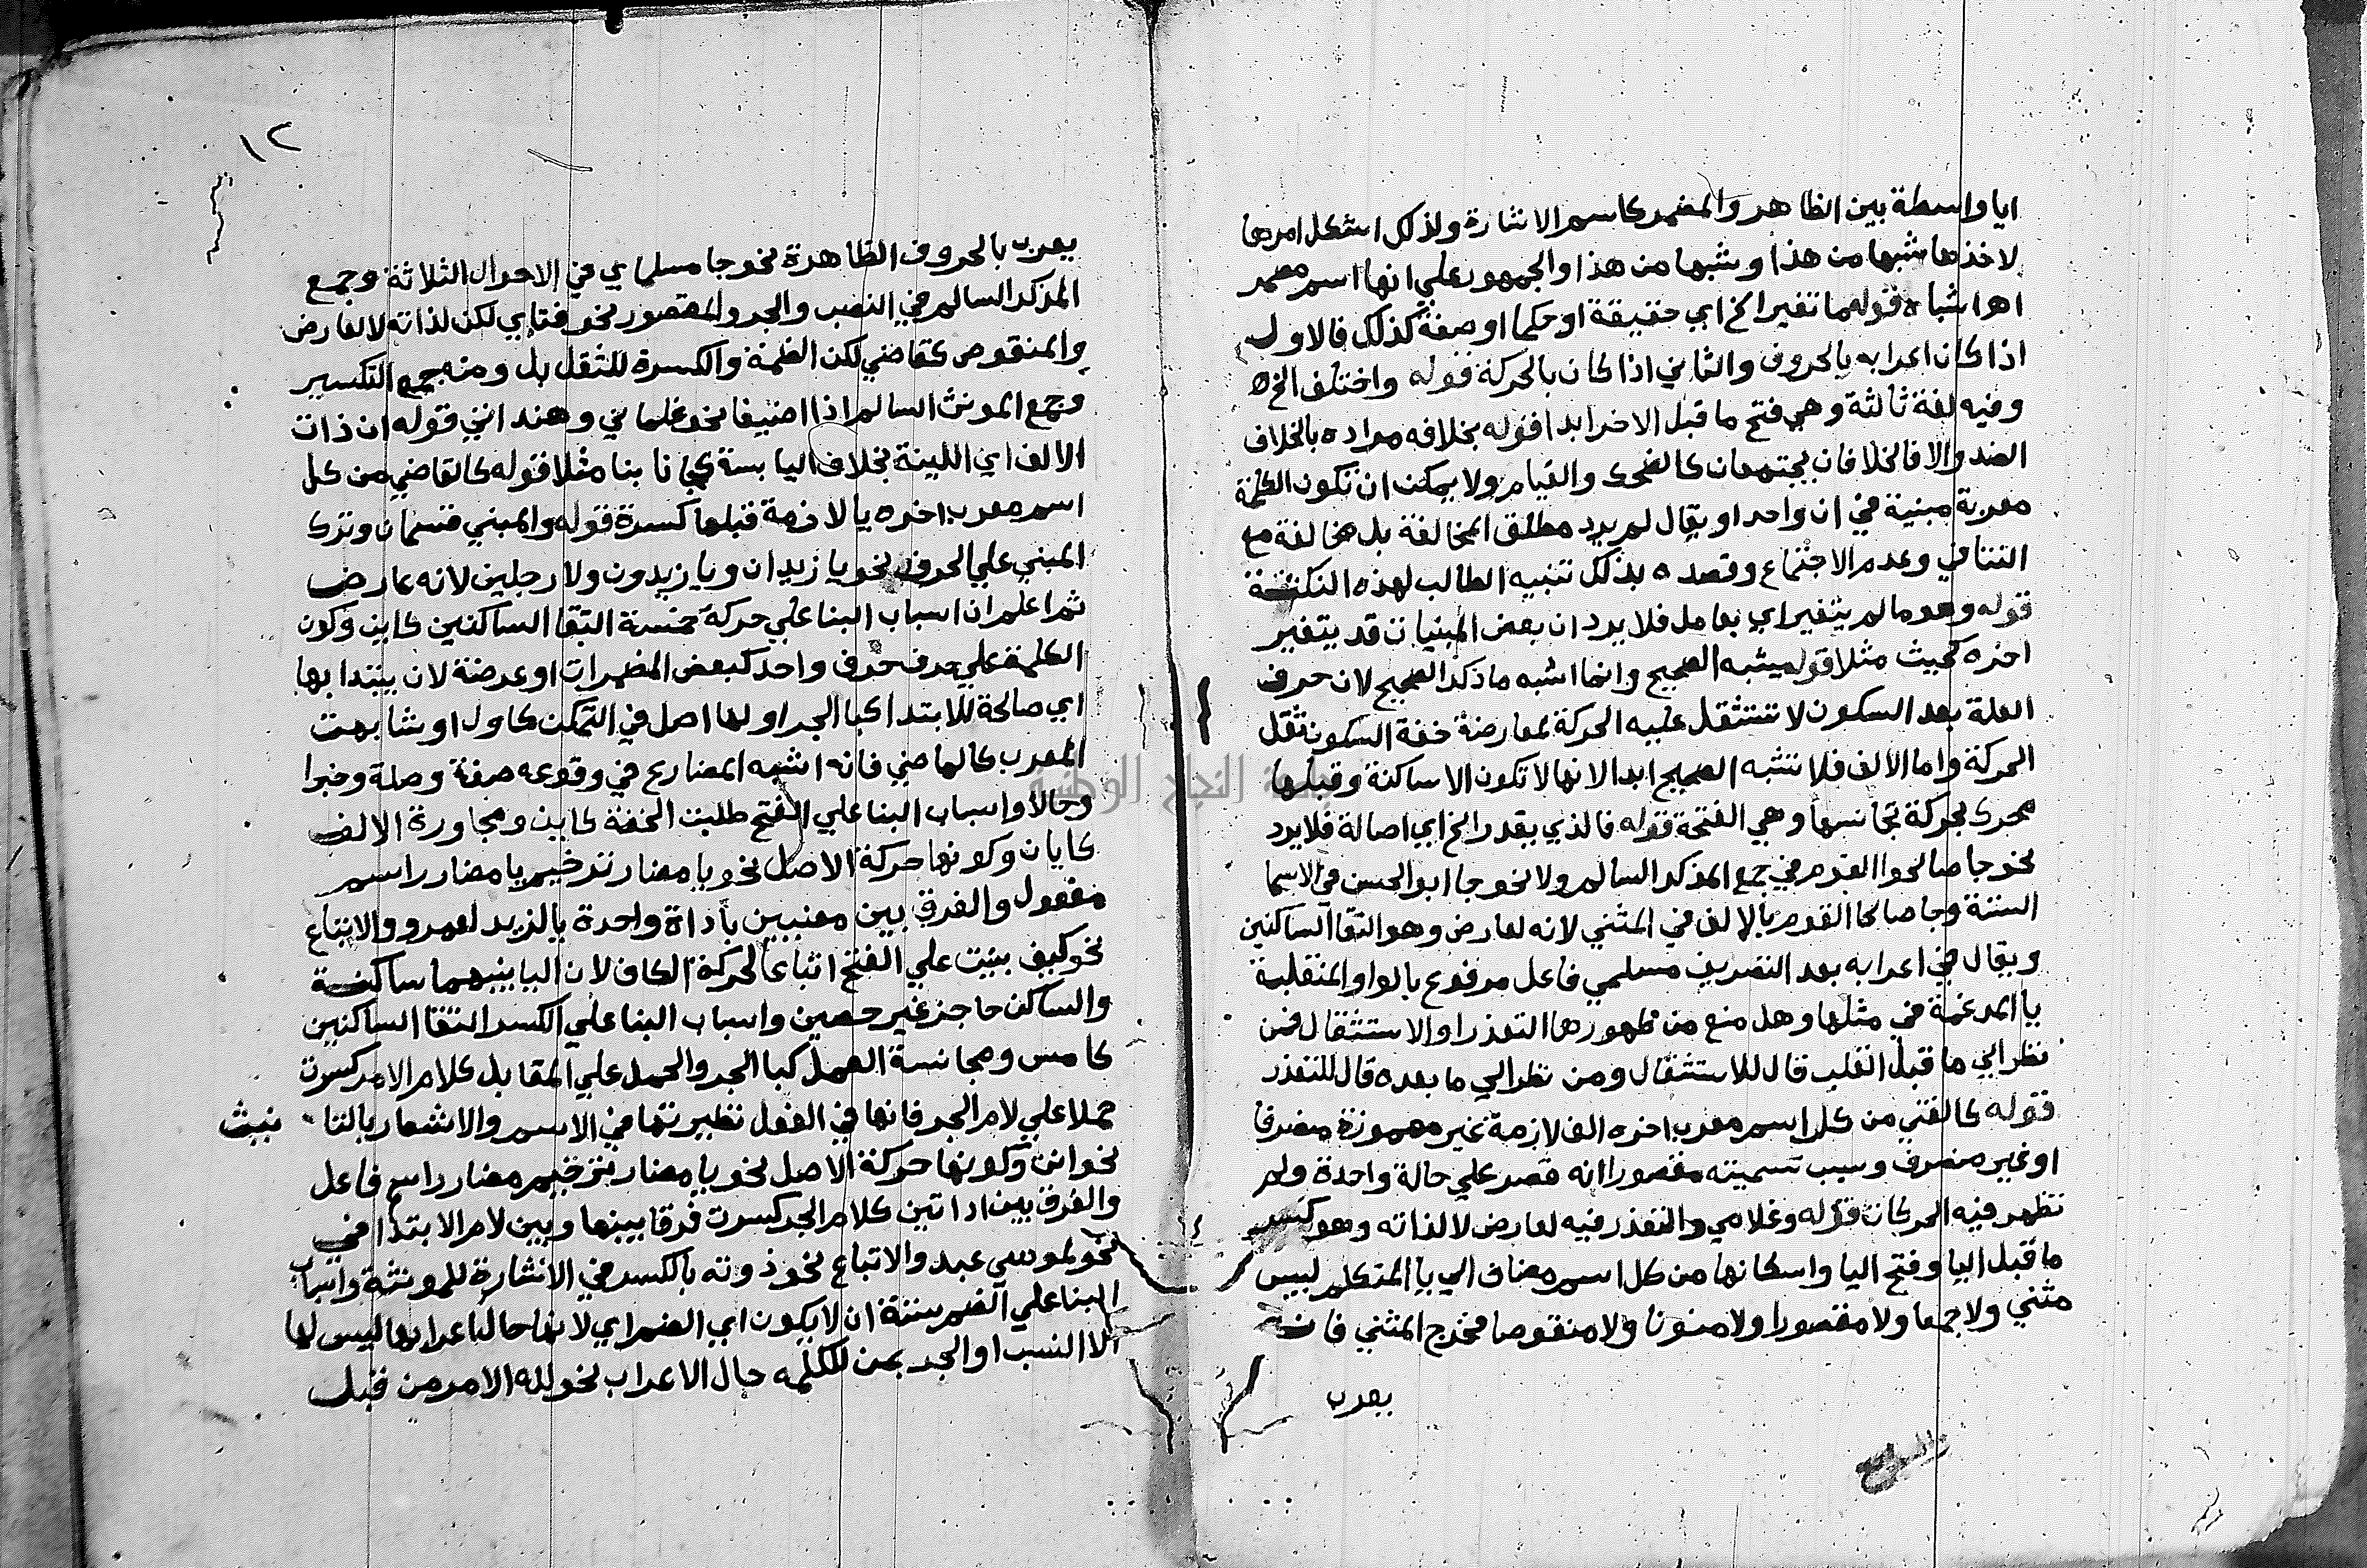 ايا واسطة بين الظاهر والمضمر كاسم الاشارة ولذلك اشكل امرها
لاخذها شبها من هذا وشبها من هذا والجمهور علي انها اسم مضمر
اه اشباه قوله ما تغير الخ اي حقيقة او حكما او صفة كذلك فالاول
اذا كان اعرابه بالحروف والثاني اذا كان بالحركة قوله واختلف الخ
وفيه لغة ثالثة وهي فتح ما قبل الاخر ابدا قوله بخلافه مراده بالخلاف
الضد والا فالخلافان يجتمعان كالضحك والقيام ولا يمكن ان تكون الكلمة
معربة مبنية في ان واحد او يقال لم يرد مطلق المخالفة بل مخالفة مع
التنافي وعدم الاجتماع وقصده بذلك تنبيه الطالب لهذه النكتة
قوله وهو ما لم يتغير اي بعامل فلا يرد ان بعض المبنيات قد يتغير
اخره كحيث مثلا قوله يشبه الصحيح وانما اشبه ما ذكر الصحيح لان حرف
العلة بعد السكون لا تستثقل عليه الحركة لمعارضة خفة السكون ثقل
الحركة واما الالف فلا تشبه الصحيح ابدا لانها لا تكون الا ساكنة وقبلها
محرك بحركة تجانسها وهي الفتحة قوله فالذي يقدر الخ اي اصالة فلا يرد
نحو جا صالحوا القوم في جمع المذكر السالم ولا نحو جا ابو الحسن في الاسما
الستة وجا صالحا القوم بالالف في المثني لانه لعارض وهو التقا الساكنين
ويقال في اعرابه بعد التصريف مسلمي فاعل مرفوع بالواو المنقلبة
يا المدغمة في مثلها وهل منع من ظهورها التعذر او الاستثقال فمن
نظر الي ما قبل القلب قال للاستثقال ومن نظر الي ما بعده قال للتعذر
قوله كالفتي من كل اسم معرب اخره الف لازمة غير مهموزة منصرفا
او غير منصرف وسبب تسميته مقصورا انه قصر علي حالة واحدة ولم
تظهر فيه الحركات قوله وغلامي والتعذر فيه لعارض لا لذاته وهو كسر
ما قبل اليا وفتح اليا واسكانها من كل اسم مضاف الي يا المتكلم ليس
مثني ولا جمعا ولا مقصورا ولا منونا ولا منقوصا فخرج المثني فانه
يعرب
١٢
يعرب بالحروف الظاهرة نحو جا مسلماي في الاحوال الثلاثة وجمع
المذكر السالم في النصب والجر والمقصور نحو فتاي لكن لذاته لا لعارض
والمنقوص كقاضي لكن الضمة والكسرة للثقل بل ومنه جمع التكسير
وجمع المونث السالم اذا اضيفا نحو غلماني وهنداتي قوله ان ذات
الالف اي اللينة بخلاف اليابسة كجا نا بنا مثلا قوله كالقاضي من كل
اسم معرب اخره يا لازمة قبلها كسرة قوله والمبني قسمان وترك
المبني علي الحرف نحو يا زيدان ويا زيدون ولا رجلين لانه عارض
ثم اعلم ان اسباب البنا علي حركة خمسة التقا الساكنين كاين وكون
الكلمة علي حرف حرف واحد كبعض المظهرات او عرضة لان يبتدا بها
اي صالحة للابتدا كبا الجر او لها اصل في التمكن كاول او شابهت
المعرب كالماضي فانه اشبه المضارع في وقوعه صفة وصلة وخبرا
وحالا واسباب البنا علي الفتح طلبت الخفة كاين ومجاورة الالف
كايان وكونها حركة الاصل نحو يا مضار ترخيم يا مضارر اسم
مفعول والفرق بين معنيين باداة واحدة يا لزيد لعمرو والاتباع
نحو كيف بنيت علي الفتح اتباعا لحركة الكاف لان اليا بينهما ساكنة
والساكن حاجز غير حصين واسباب البنا علي الكسر التقا الساكنين
كامس ومجانسة العمل كبا الجر والحمل علي المقابل كلام الامر كسرت
حملا علي لام الجر فانها في الفعل نظيرتها في الاسم والاشعار بالتا نيث
نحو انت وكونها حركة الاصل نحو يا مضار ترخيم مضارر اسم فاعل
والفرق بين اداتين كلام الجر كسرت فرقا بينها وبين لام الابتدا في
نحو لموسي عبد والاتباع نحو ذه وته بالكسر في الاشارة للمونثة واسباب
البنا علي الضم ستة ان لا يكون اي الضم اي لانها حال اعرابها ليس لها
الا النسب او الجر بمن للكلمه حال الاعراب نحو لله الامر من قبل